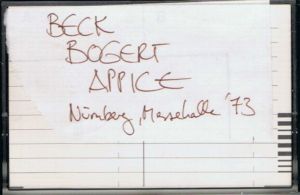 BECK
BOGERT
APPICE
Nürnberg, Messehalle '73